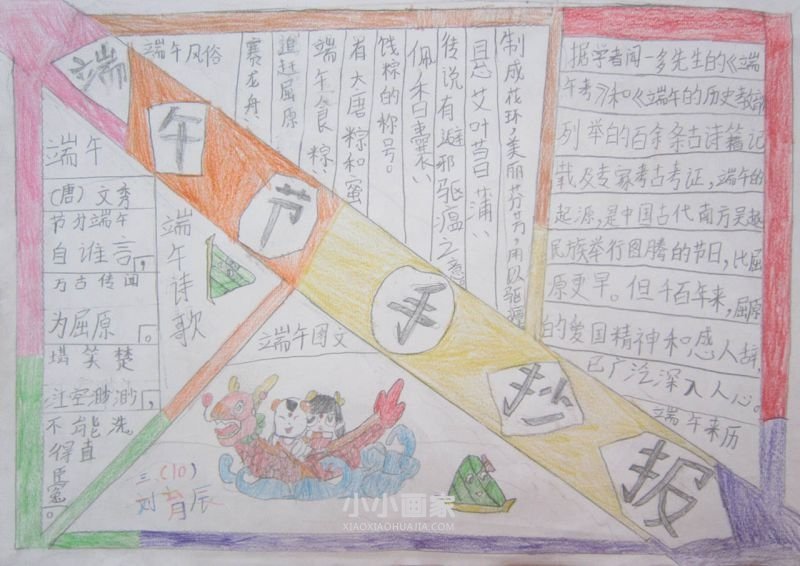 端午节手抄报
端午风俗
赛龙舟
追赶屈原
端午食粽
有大唐粽和蜜
饯粽的称号。
佩香囊
传说有避邪驱瘟之意
悬艾叶菖蒲
制成花环,美丽芬芳,用以驱瘴
据学者闻一多先生的《端
午考》和《端午的历史教育
列举的百余条古诗籍记
载及专家考古考证,端午的
起源,是中国古代南方吴越
民族举行图腾的节日,比屈
原更早。但千百年来,屈原
的爱国精神和感人辞
已广泛深入人心。
端午来历
端午
(唐)文秀
节分端午
自谁言,
万古传闻
为屈原。
堪笑楚
江空渺渺,
不能洗
得直
臣冤。
端午诗歌
端午图文
三(10)
刘育辰
小小画家
XIAOXIAOHUAJIA.COM